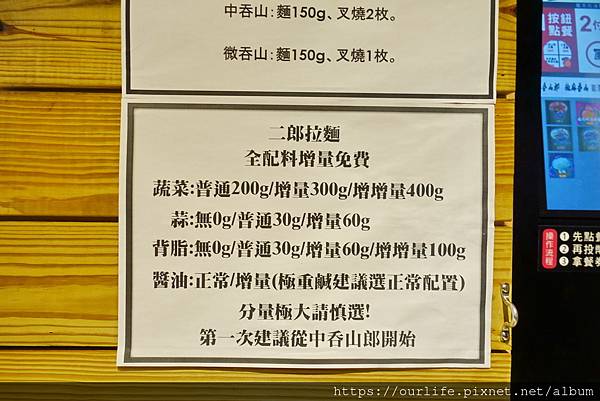 中吞山：麵150g、叉燒2枚。
微吞山：麵150g、叉燒1枚。
二郎拉麵
全配料增量免費
蔬菜:普通200g/增量300g/增增量400g
蒜:無0g/普通30g/增量60g
背脂:無0g/普通30g/增量60g/增增量100g
醬油:正常/增量(極重鹹建議選正常配置)
分量極大請慎選!
第一次建議從中吞山郎開始
按鈕
點餐
2
操作流程
1 先點餐
2 再投
3 拿餐
https://ourlife.pixnet.net/album